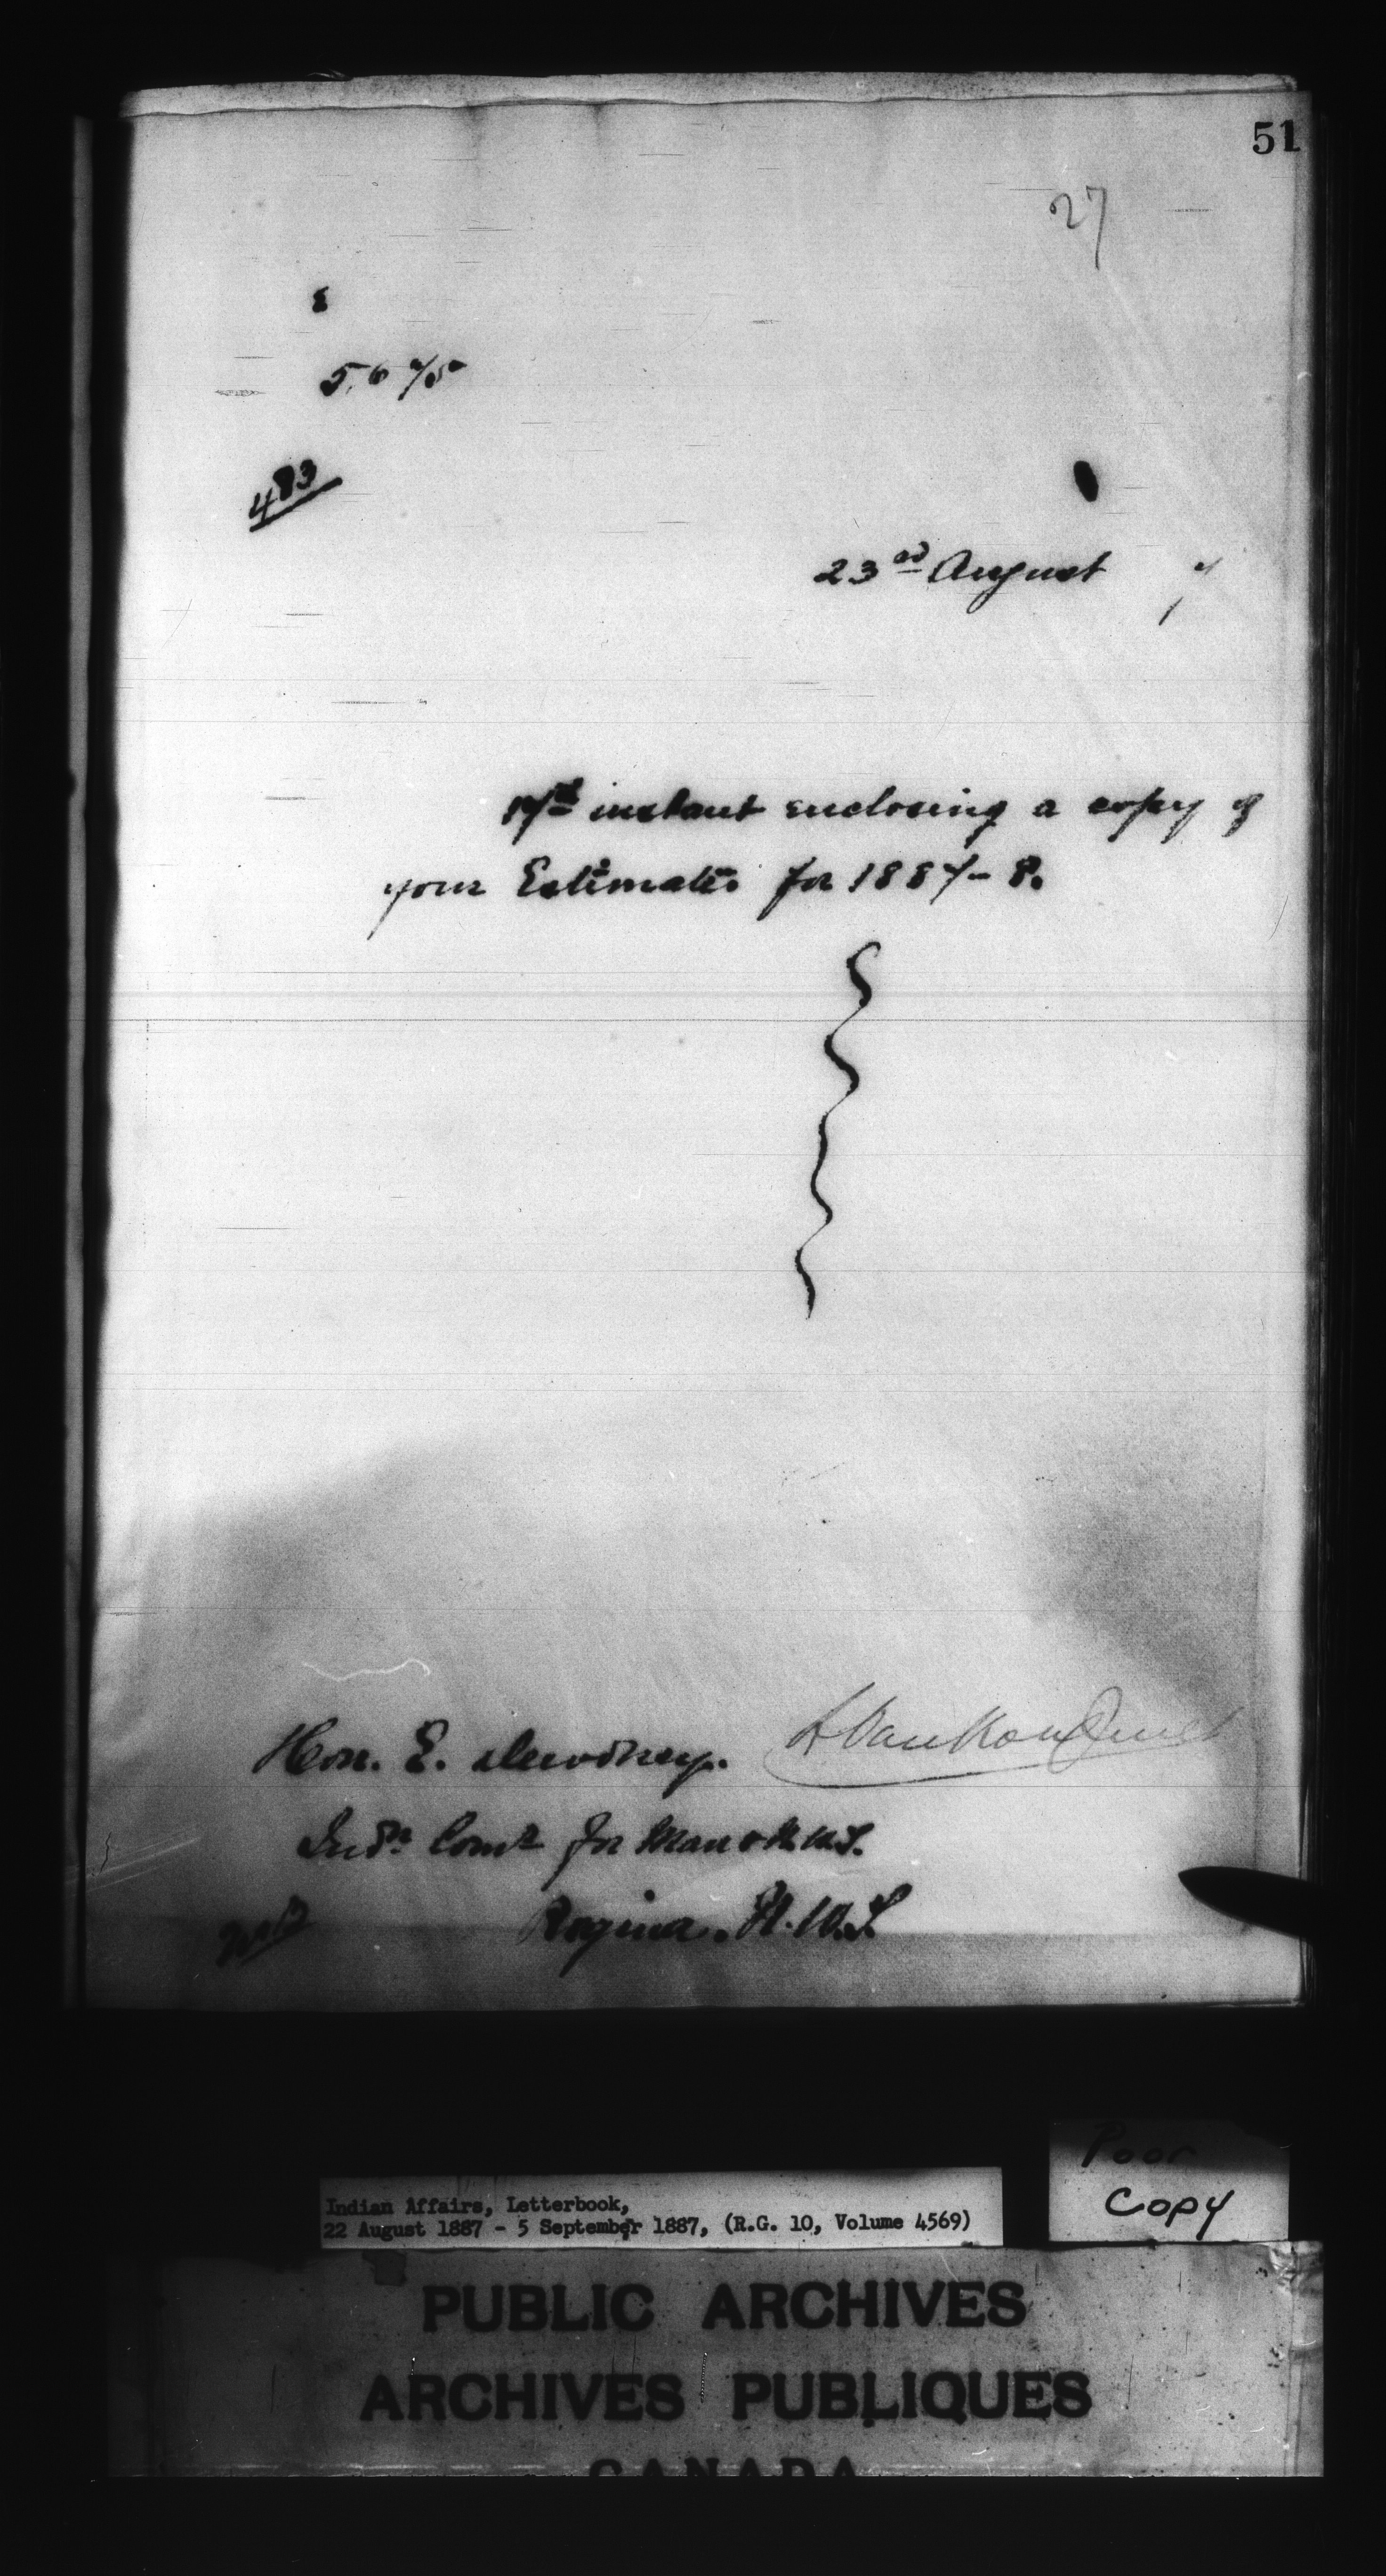 51
27
483
23rd August 7
17th instant enclosing a copy of
your Estimates for 1887-8.
L VanKoughnet
Hon. E. Dewdney.
Indn Comr for Man & N.W.T.
Regina. N.W.T.
Poor
Copy
Indian Affairs, Letterbook,
22 August 1887 - 5 September 1887, (R.G. 10, Volume 4569)
PUBLIC ARCHIVES
ARCHIVES PUBLIQUES
CANADA